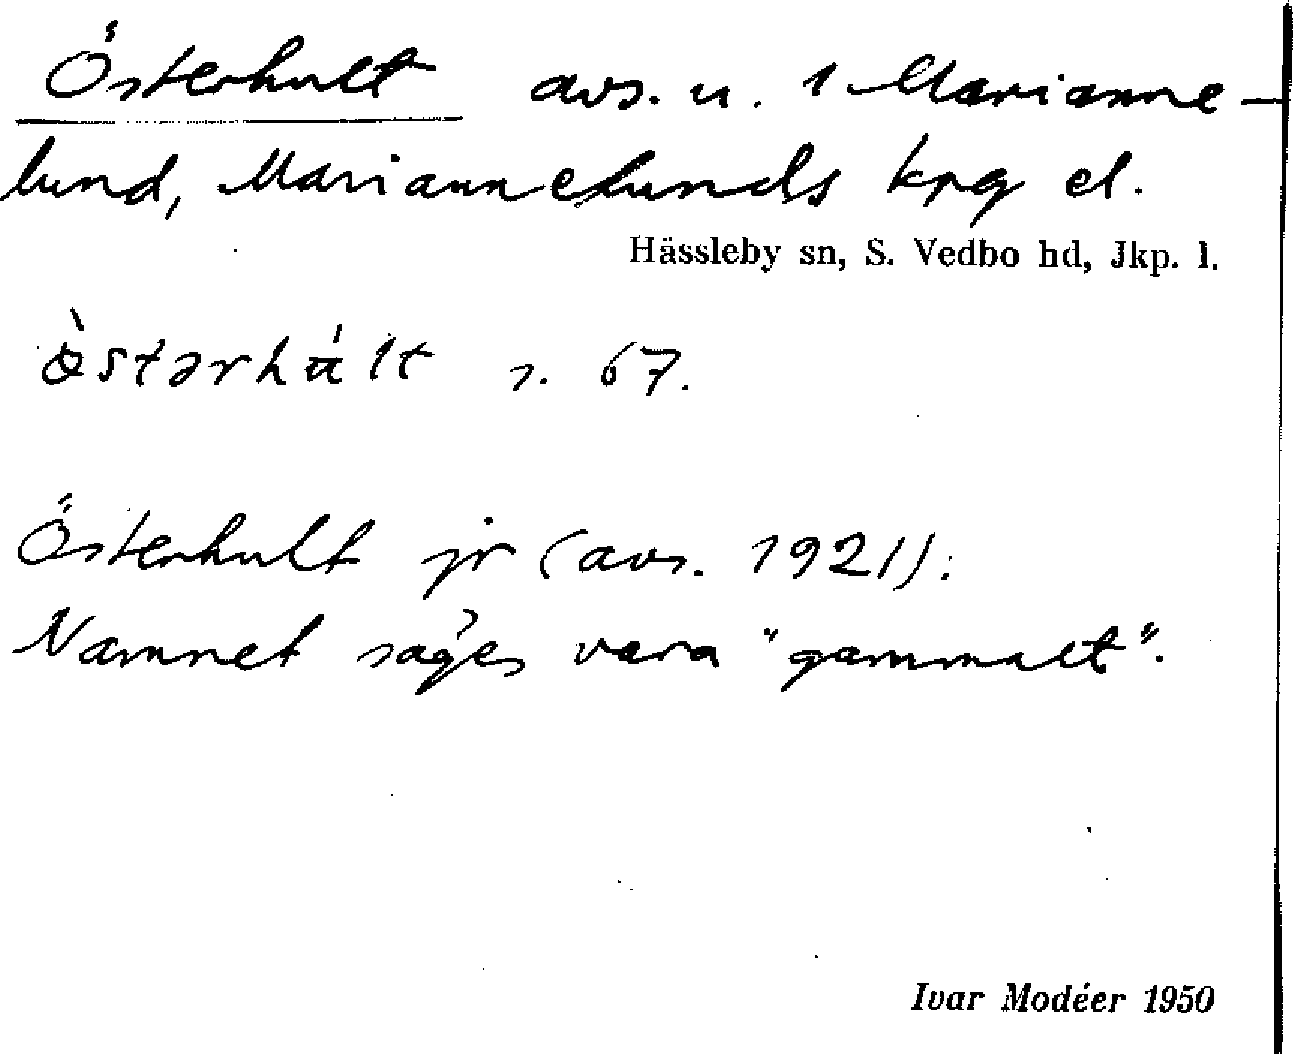 Österhult avs. u. 1 Marianne-
lund, Mariannelunds kpg el.
Hässleby sn, S. Vedbo hd, Jkp. l.
s. 67.
Österhult jr (avs. 1921):
Namnet säges vara "gammalt".
Ivar Modéer 1950